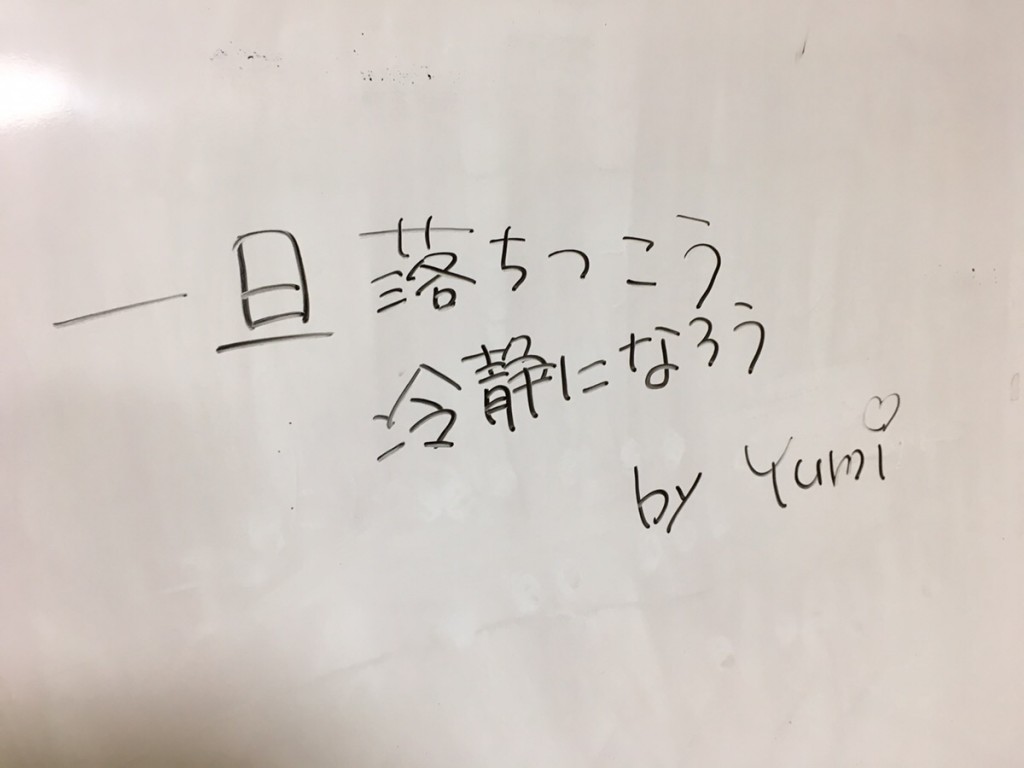 一旦落ちつこう
冷静になろう
by Yumi♡